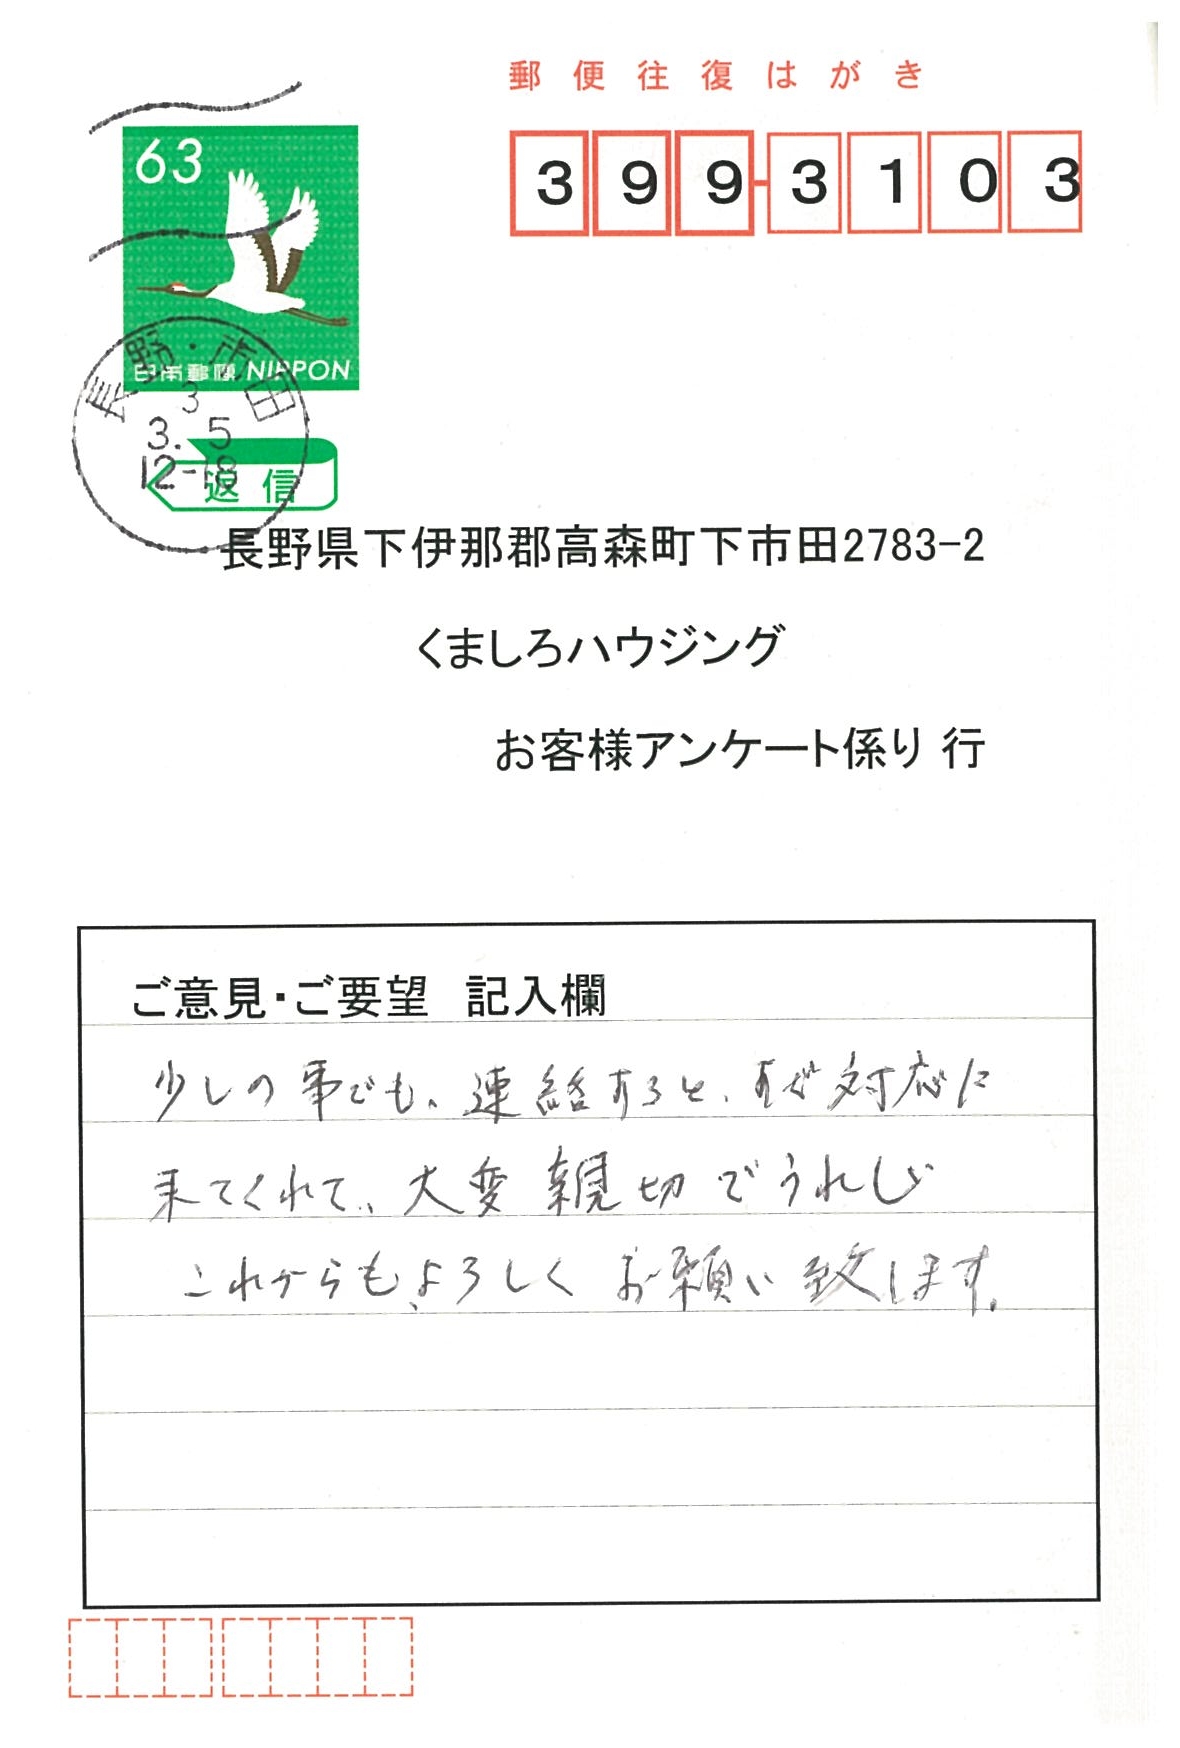 郵便往復はがき
63
399-3103
日本郵便 NIPPON
長野・市田
3
3. 5
12-18
返信
長野県下伊那郡高森町下市田2783-2
くましろハウジング
お客様アンケート係り 行
ご意見・ご要望 記入欄
少しの事でも、連絡すると、すぐ対応に
来てくれて、大変親切でうれしい
これからも、よろしくお願い致します。